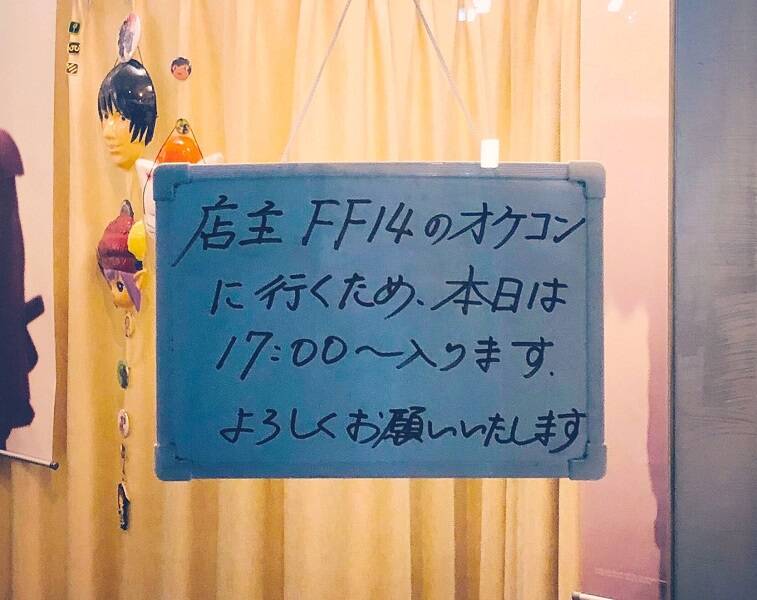 店主 FF14のオケコン
に行くため、本日は
17:00〜入ります.
よろしくお願いいたします